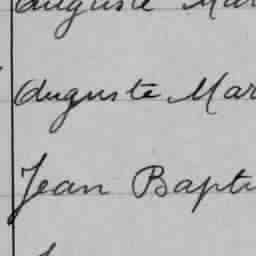 Auguste Mar
Auguste Mar
Jean Bapti